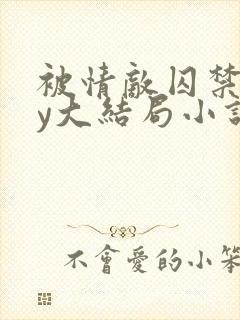 被情敵囚禁
y大結局小說
不會愛的小笨